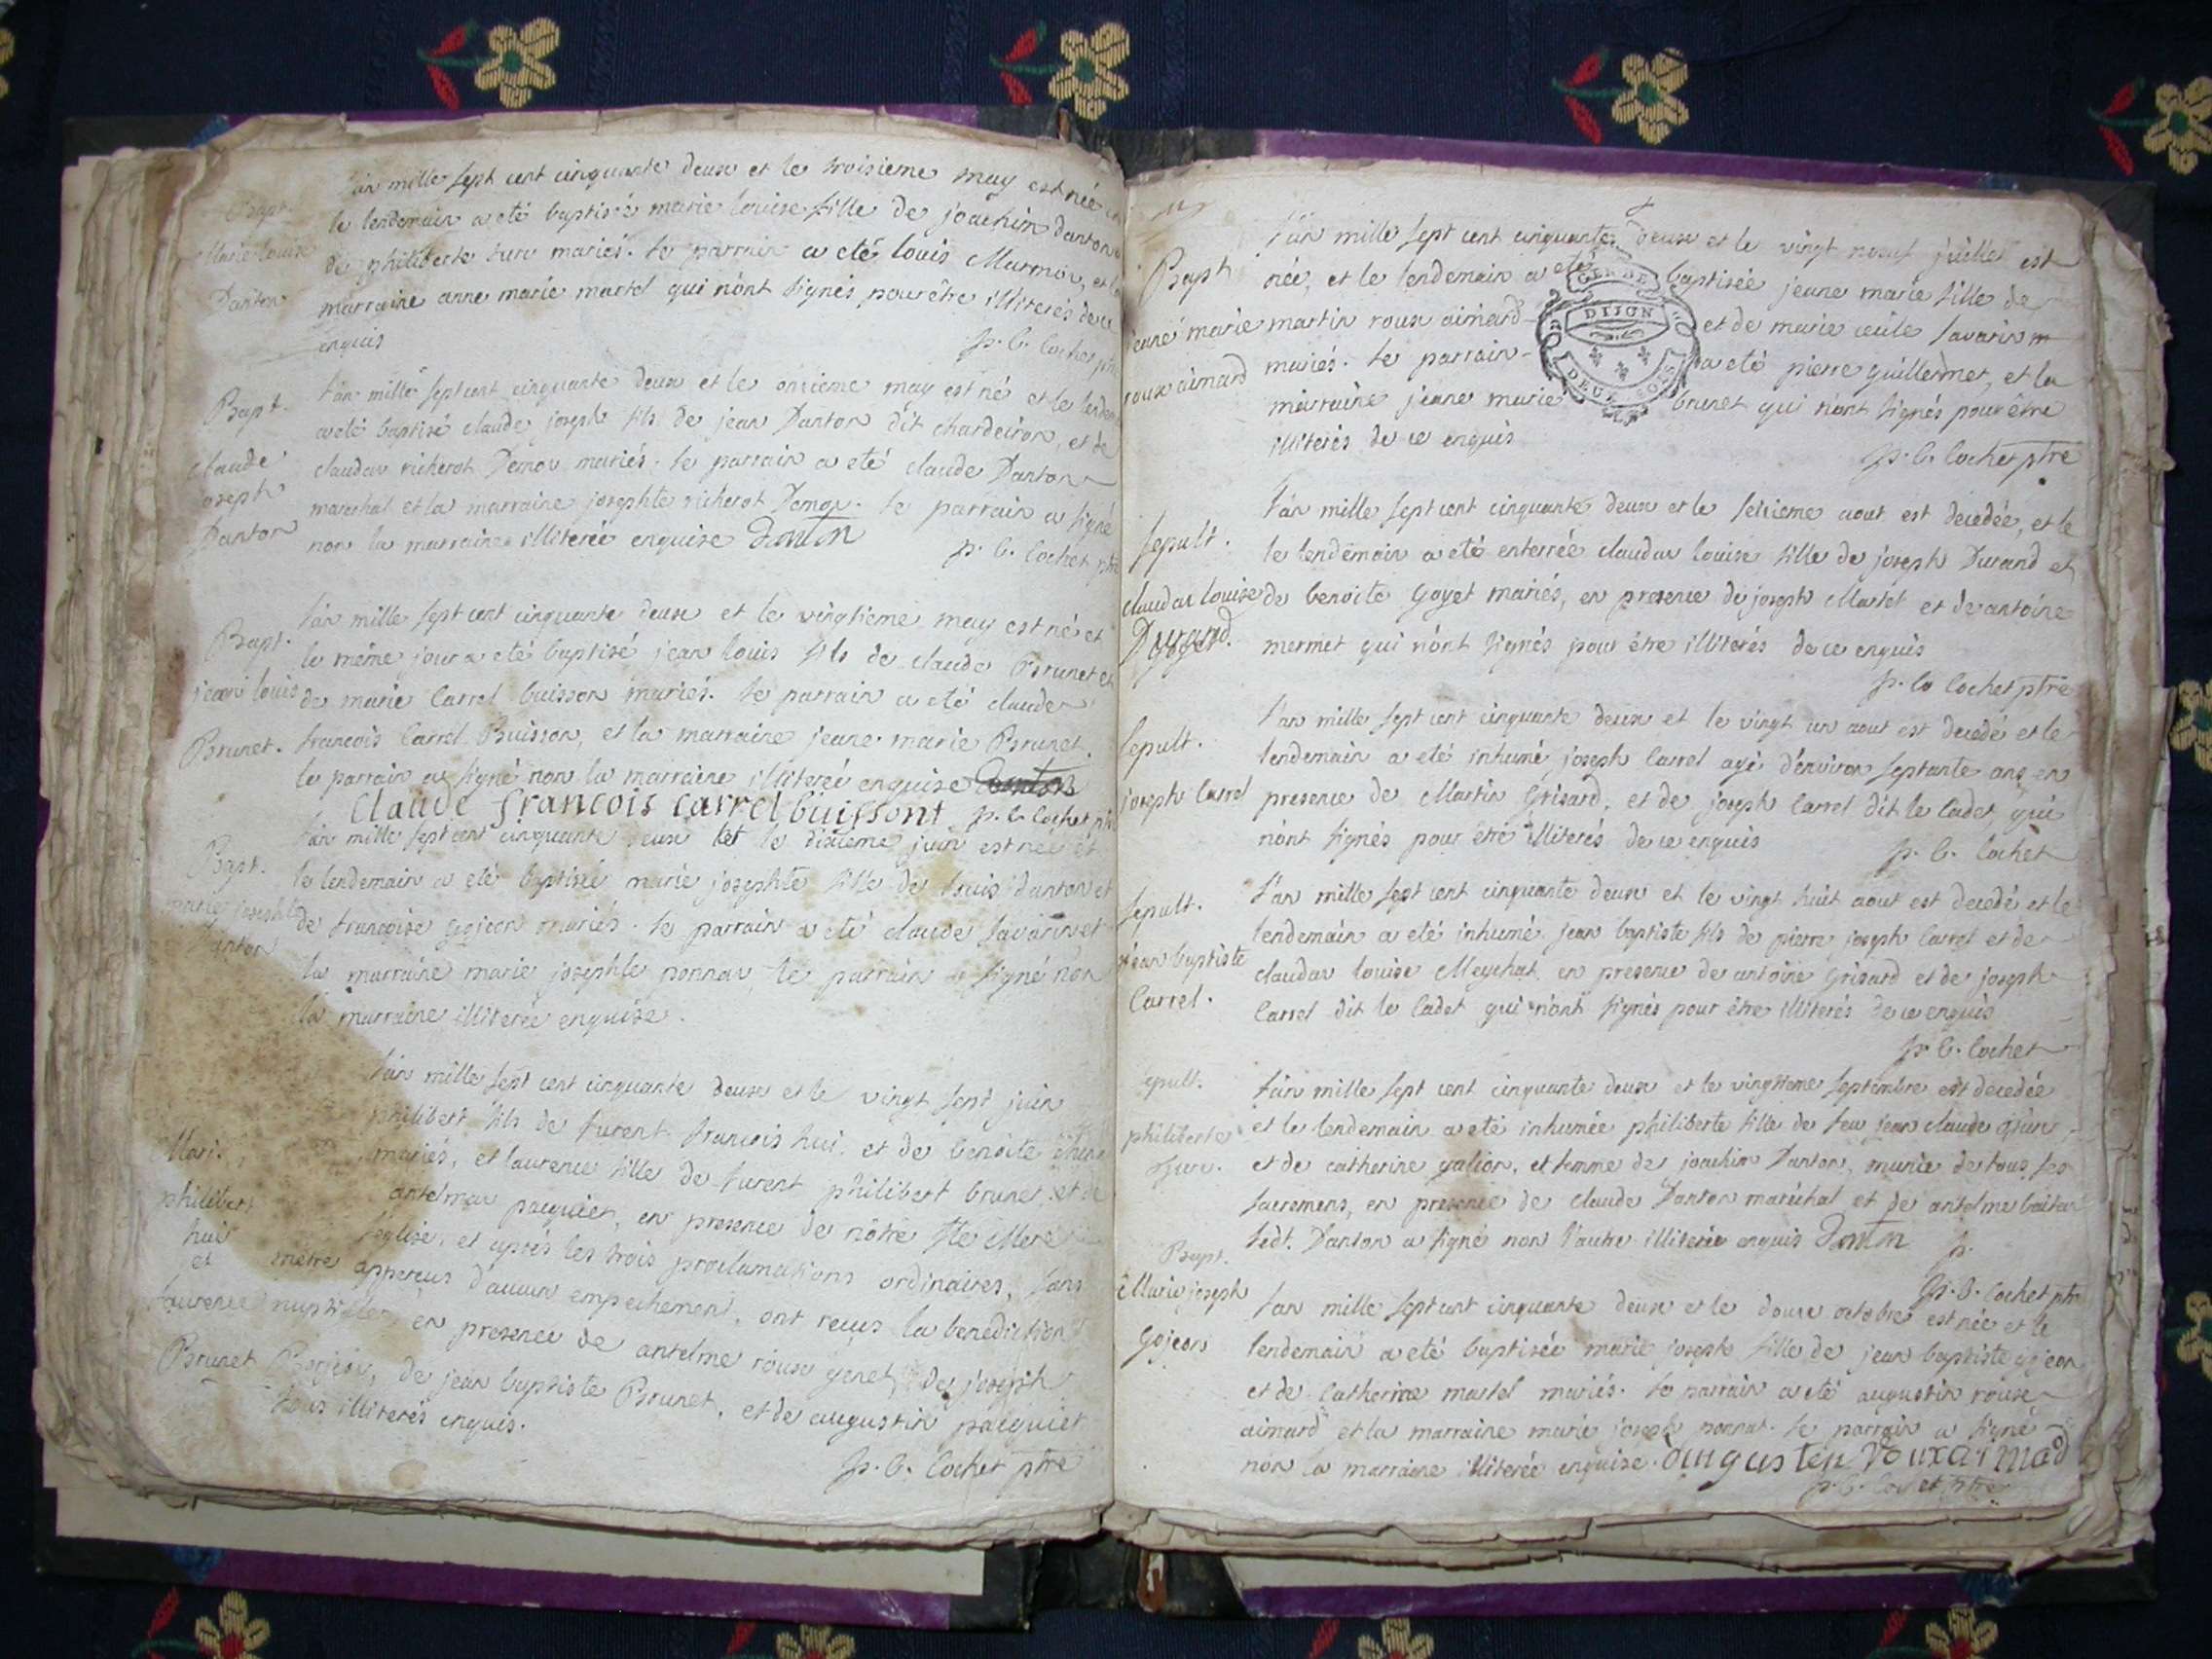 Bapt.
Marie louise
Danton
L'an mille sept cent cinquante deux et le troisieme may est née et
le lendemain a eté baptisée marie louise fille de joachim danton et
de philiberte Jure mariés. le parrain a eté louis Marmier, et la
marraine anne marie martel qui n'ont signés pour être illiterés de ce
enquis
p. C. Cochet ptre
Bapt.
claude
joseph
Danton
L'an mille sept cent cinquante deux et le onzieme may est né et le lendemain
a eté baptisé claude joseph fils de jean Danton dit chardeiron, et de
claudar richerot Demou mariés. le parrain a eté claude Danton
marechal et la marraine josephte richerot Demou. le parrain a signé
non la marraine illiterée enquise Danton
p. C. Cochet ptre
Bapt.
jean louis
Brunet.
L'an mille sept cent cinquante deux et le vingtieme may est né et
le même jour a eté baptisé jean louis fils de claude Brunet et
de marie Carrel buisson mariés. le parrain a eté claude
francois Carrel Buisson, et la marraine jeane marie Brunet.
le parrain a signé non la marraine illiterée enquise
Claude francois carrel buissont p. C. Cochet ptre
Bapt.
marie josephte
Danton
L'an mille sept cent cinquante deux et le dixieme juin est née et
le lendemain a eté baptisée marie josephte fille de louis danton et
de francoise gojeon mariés. le parrain a eté claude savarin et
la marraine marie josephte ponnar, le parrain a signé non
la marraine illiterée enquise.
Mari.
philibert
hui
et
laurence
Brunet
L'an mille sept cent cinquante deux et le vingt sept juin
philibert fils de furent francois hui et de benoite
mariés, et laurence fille de furent philibert brunet, et de
antelmar pacquiet, en presence de nôtre Ste Mere
l'eglise, et aprés les trois proclamations ordinaires, sans
mêtre apperçus d'aucun empechement, ont reçus la benediction
nuptiale en presence de antelme roux genet, de joseph
Borjeon, de jean baptiste Brunet, et de augustin pacquiet
tous illiterés enquis.
p. C. Cochet ptre
Bapt
jeane marie
roux aimard
L'an mille sept cent cinquante deux et le vingt neuf juillet est
née, et le lendemain a eté baptisée jeane marie fille de
martin roux aimard et de marie cecile savarin
mariés. le parrain a eté pierre guillermet, et la
marraine jeane marie brunet qui n'ont signés pour être
illiterés de ce enquis
GEN DE
DIJON
DEUX SOLS
p. C. Cochet ptre
Sepult.
claudar louise
Durand.
L'an mille sept cent cinquante deux et le seizieme aout est decedée, et le
le lendemain a eté enterrée claudar louise fille de joseph Durand et
de benoite Goyet mariés, en presence de joseph Martel et de antoine
mermet qui n'ont signés pour être illiterés de ce enquis
p. C. Cochet ptre
Sepult.
joseph Carrel
L'an mille sept cent cinquante deux et le vingt un aout est decedé et le
lendemain a eté inhumé joseph Carrel agé d'environ septante ans en
presence de Martin Grisard, et de joseph Carrel dit le Cadet, qui
n'ont signés pour être illiterés de ce enquis
p. C. Cochet
Sepult.
jean baptiste
Carrel.
L'an mille sept cent cinquante deux et le vingt huit aout est decedé et le
lendemain a eté inhumé jean baptiste fils de pierre joseph Carrel et de
claudar louise Meychat en presence de antoine Grisard et de joseph
Carrel dit le Cadet qui n'ont signés pour être illiterés de ce enquis
p. C. Cochet
sepult.
philiberte
Jure.
L'an mille sept cent cinquante deux et le vingtieme septembre est decedée
et le lendemain a eté inhumée philiberte fille de feu jean claude Jure
et de catherine galion, et femme de joachim Danton, munie de tous ses
sacremens, en presence de claude Danton maréchal et de antelme
ledt. Danton a signé non l'autre illiterée enquis Danton
p. C. Cochet ptre
Bapt.
Marie joseph
Gojeon
L'an mille sept cent cinquante deux et le douze octobre est née et le
lendemain a eté baptisée marie joseph fille de jean baptiste gojeon
et de Catherine martel mariés. le parrain a eté augustin roux
aimard et la marraine marie joseph ponnat. le parrain a signé
non la marraine illiterée enquise. augusten Rouxaimad
p. C. Cochet ptre